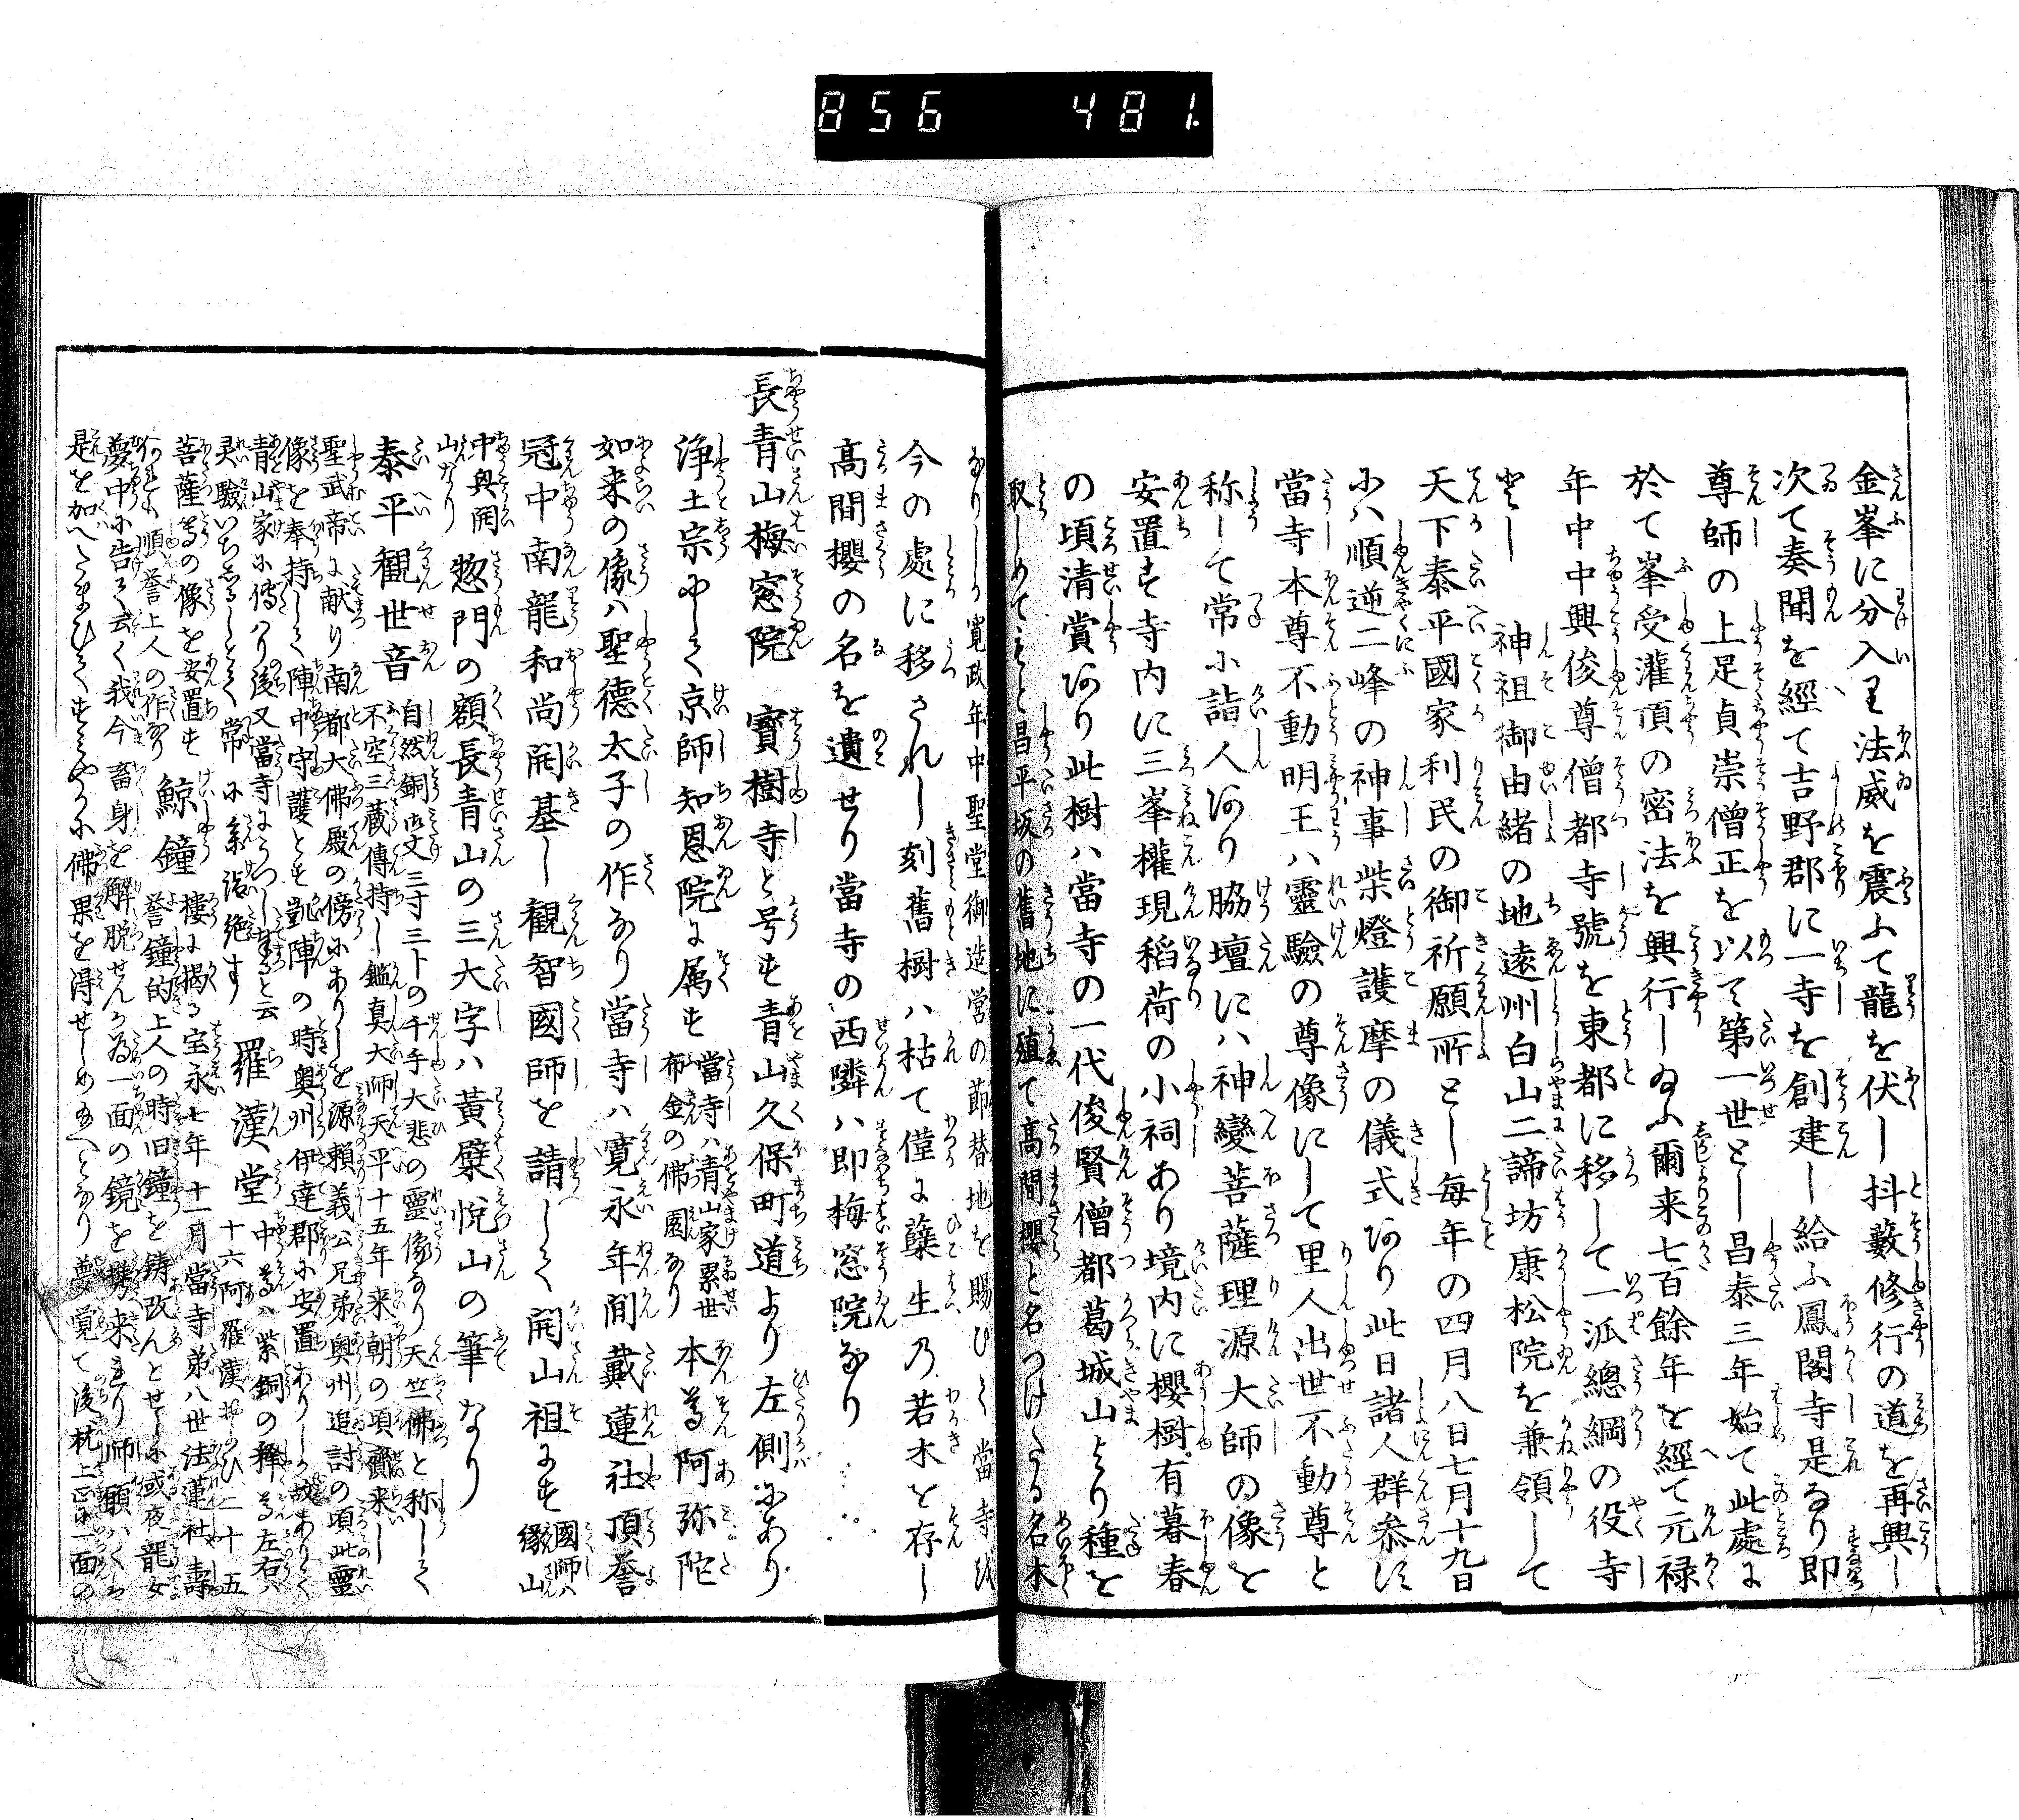 856 481.
金峯に分入王法威を震ふて龍を伏し抖藪修行の道を再興し
次て奏聞を經て吉野郡に一寺を創建し給ふ鳳閣寺是なり即
尊師の上足貞崇僧正を以て第一世とし昌泰三年始て此處に
於て峯受灌頂の密法を興行し給ふ爾来七百餘年を經て元禄
年中中興俊尊僧都寺號を東都に移して一派總綱の役寺
とし 神祖御由緒の地遠州白山二諦坊康松院を兼領して
天下泰平國家利民の御祈願所とし毎年の四月八日七月十九日
には順逆二峰の神事柴燈護摩の儀式あり此日諸人群参す
當寺本尊不動明王ハ靈驗の尊像にして里人出世不動尊と
称して常に詣人あり脇壇にハ神變菩薩理源大師の像を
安置す寺内に三峯權現稲荷の小祠あり境内に櫻樹有暮春
の頃清賞あり此樹ハ當寺の一代俊賢僧都葛城山より種を
取しめてもと昌平坂の舊地に殖て高間櫻と名つけたる名木
なりしか寛政年中聖堂御造営の節替地を賜ひて當寺を
今の處に移されし刻舊樹ハ枯て僅に蘖生乃若木を存し
高間櫻の名を遺せり當寺の西隣ハ即梅窓院なり
長青山梅窓院 寳樹寺と号す青山久保町道より左側にあり
浄土宗にして京師知恩院に属す 當寺ハ青山家累世布金の佛園なり 本尊阿弥陀
如来の像ハ聖德太子の作なり當寺ハ寛永年間戴蓮社頂誉
冠中南龍和尚開基し観智國師を請して開山祖とす 國師ハ縁山
中興開山なり 惣門の額長青山の三大字ハ黄檗悦山の筆なり
泰平観世音 自然銅 三寸三卜の千手大悲の靈像なり天竺佛と称して
不空三蔵傳持し鑑真大師天平十五年来朝の頃齎来し
聖武帝に献り南都大佛殿の傍にありしを源頼義公兄弟奥州追討の頃此靈
像を奉持して陣中守護とす凱陣の時奥州伊達郡に安置ありしか故ありて
青山家に傳ハり後又當寺にうつしまゐると云 羅漢堂 中尊ハ紫銅の釋尊左右ハ
灵驗いちしるしとて常に系詣絶す 十六阿羅漢およひ二十五
菩薩等の像を安置す 鯨鐘 樓に掲る宝永七年十一月當寺第八世法蓮社壽
誉鐘的上人の時旧鐘を鋳改んとせしに或夜龍女
夢中に告て云く我今畜身を解脱せんか為一面の鏡を携来れり師願ハくは
是を加へたまひてすみやかに佛果を得せしめ給へとなり夢覚て後枕上に一面の